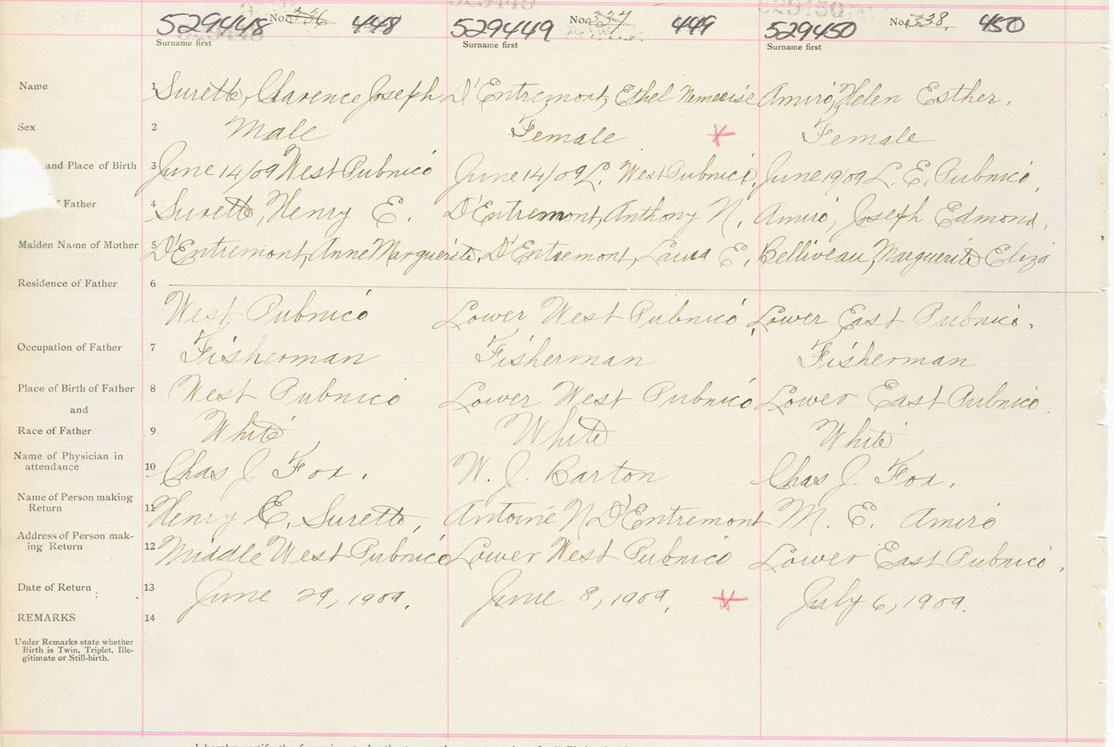 529448 No. 336 448 529449 No. 337 449 529450 No. 338 450
Surname first Surname first Surname first
Name 1 Surette, Clarence Joseph D'Entremont, Ethel Nemerise Amiro, Helen Esther.
Sex 2 Male Female Female
and Place of Birth 3 June 14/09 West Pubnico June 14/09 L. West Pubnico. June 1909 L. E. Pubnico,
of Father 4 Surette, Henry E. D'Entremont, Anthony N. Amiro, Joseph Edmond.
Maiden Name of Mother 5 D'Entremont, Anne Marguerite. D'Entremont, Laura E. Belliveau, Marguerite Eliza
Residence of Father 6
West Pubnico Lower West Pubnico Lower East Pubnico.
Occupation of Father 7 Fisherman Fisherman Fisherman
Place of Birth of Father 8 West Pubnico Lower West Pubnico Lower East Pubnico.
and
Race of Father 9 White White White
Name of Physician in
attendance 10 Chas J. Fox. W. J. Barton Chas J. Fox.
Name of Person making
Return 11 Henry E. Surette, Antoine N D'Entremont M. E. Amiro
Address of Person mak-
ing Return 12 Middle West Pubnico Lower West Pubnico Lower East Pubnico.
Date of Return 13 June 29, 1909. June 8, 1909. July 6, 1909.
REMARKS 14
Under Remarks state whether
Birth is Twin, Triplet, Ille-
gitimate or Still-birth.